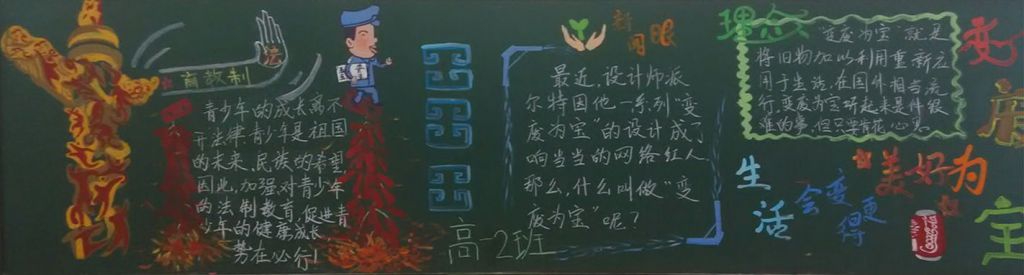 法
育教制
青少年的成长离不
开法律,青少年是祖国
的未来,民族的希望
因此,加强对青少年
的法制教育,促进青
少年的健康成长
势在必行!
高一2班
新
闻眼
最近,设计师派
尔特因他一系列"变
废为宝"的设计成了
响当当的网络红人
那么,什么叫做"变
废为宝"呢?
理念
变废为宝 就是
将旧物加以利用重新应
用于生活,在国外相当流
行,变废为宝听起来是件很
难的事,但只要肯花心思
变
废
为
宝
生
活
会变
得更
美好